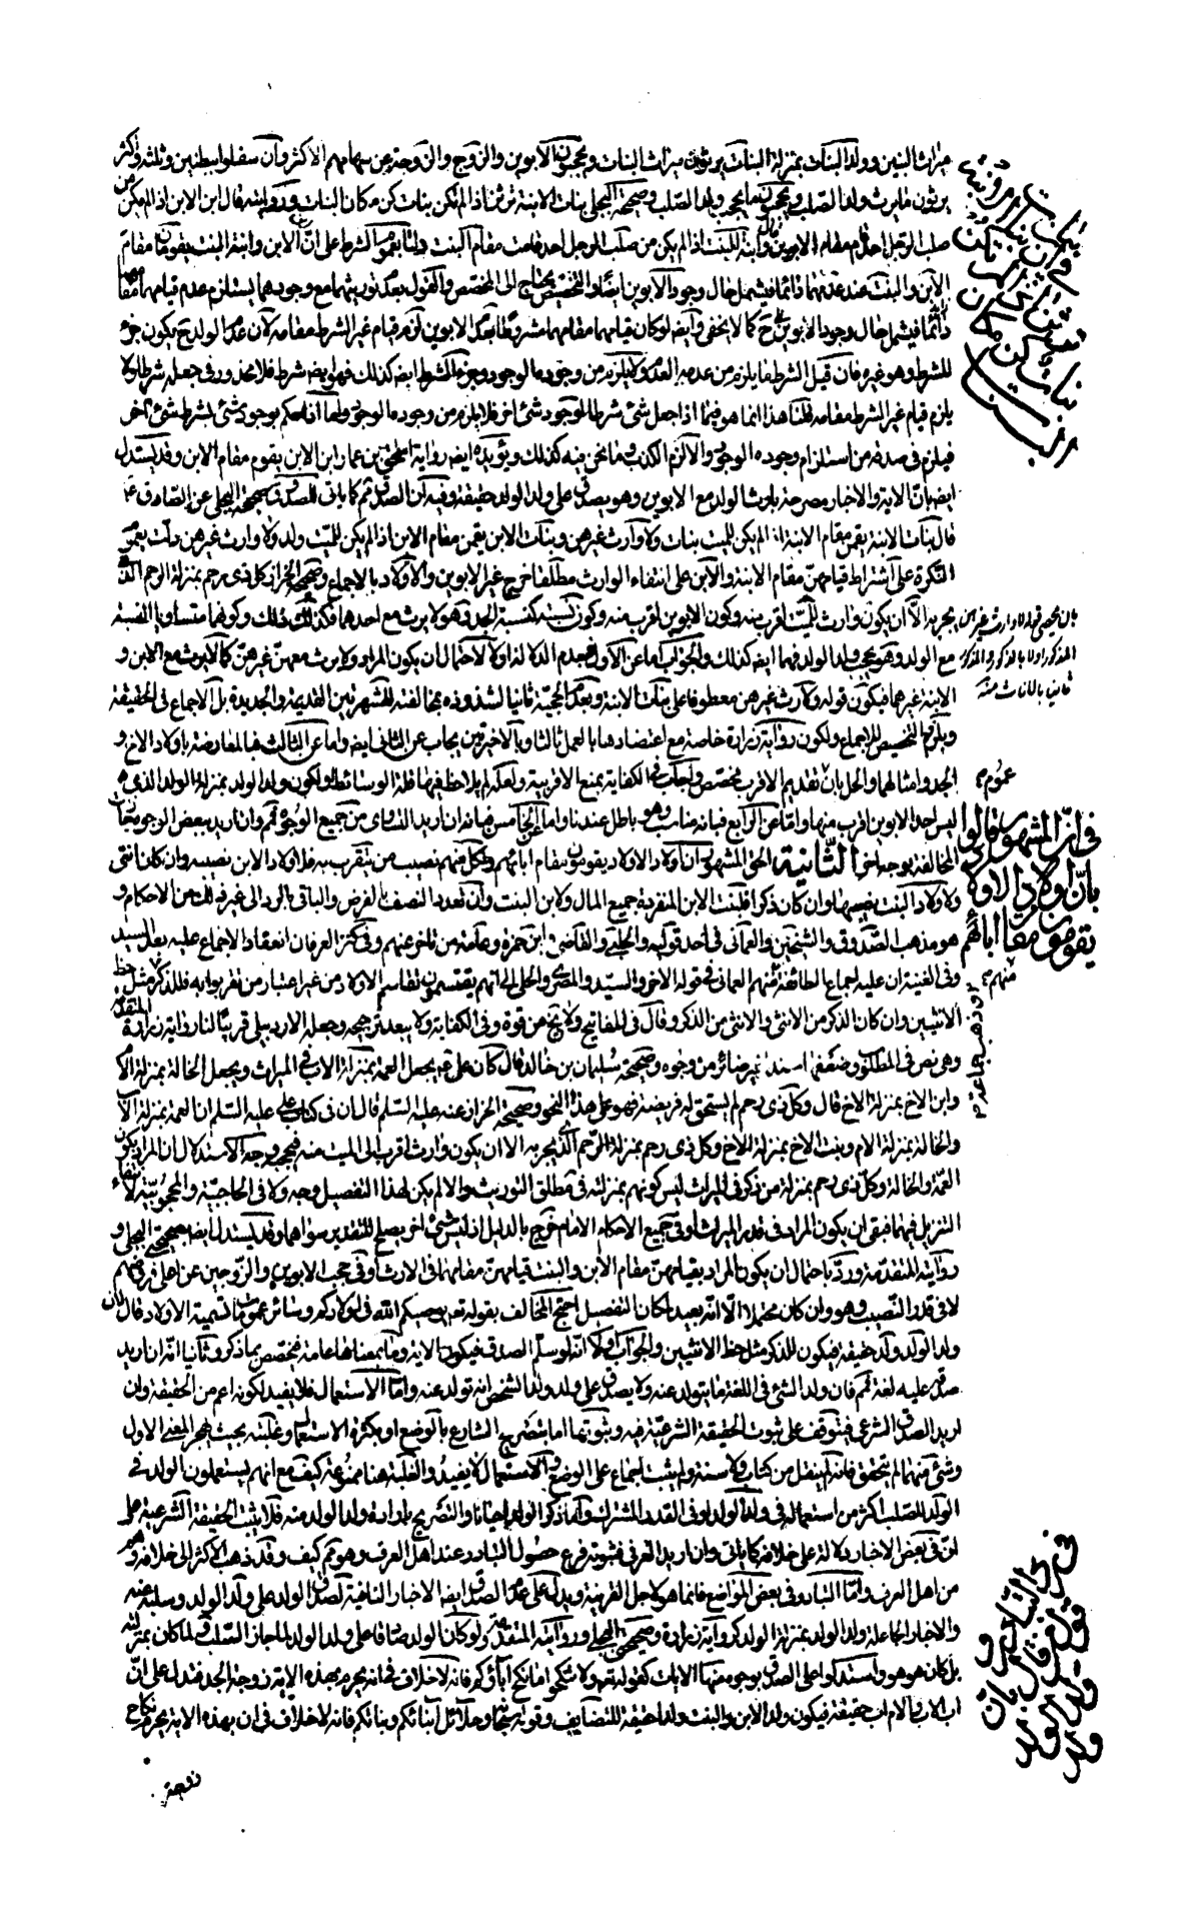 ميراث البنين وولد البنات بمنزلة البنات يرثون ميراث البنات ويحجبون الابوين والزوج والزوجة عن سهامهم الاكثر وان سفلوا ببطنين وثلثة واكثر
يرثون ما يرث ولد الصلب ويحجبون ما يحجب ولد الصلب وصحيحة البجلي بنات الابنة يرثن اذا لم تكن بنات كن مكان البنات وروايته قال ابن الابن اذا لم يكن من
صلب الرجل احد قام مقام الابن وابنة البنت اذا لم يكن من صلب الرجل احد قامت مقام البنت دلتا بعموم الشرط على ان الابن وابنة البنت يقومان مقام
الابن والبنت عند عدمهما دائما فيشمل حال وجود الابوين ايضا والتخصيص يحتاج الى المخصص والقول بعدم توريثهما مع وجودهما يستلزم عدم قيامهما مقامهما
دائما فيشمل حال وجود الابوين ح كما لا يخفى وايضا لو كان قيامهما مقامهما مشروطا بعدم الابوين لزم قيام غير الشرط مقامه لان عدم الولد ح يكون جزء
للشرط وهو غيره فان قيل الشرط ما يلزم من عدمه العدم ولا يلزم من وجوده الوجود وجزء الشرط ايضا كذلك فهو ايضا شرط فلا محذور في جعله شرطا ولا
يلزم قيام غير الشرط مقامه قلنا هذا انما هو فيما اذا جعل شئ شرطا لوجود شئ اخر فلا يلزم من وجوده الوجود واما اذا حكم بوجود شئ بشرط شئ اخر
فيلزم في صدقه من استلزام وجوده الوجود والا لزم الكذب وما نحن فيه كذلك ويؤيده ايضا رواية اسحق بن عمار ابن الابن يقوم مقام الابن وقد يستدل
ايضا بان الاية والاخبار مصرحة بارث الولد مع الابوين وهو يصدق على ولد الولد حقيقة وفيه ان الصدق ثم كما ياتي للصدوق صحيحة البجلي عن الصادق ع
قال بنات الابنة يقمن مقام الابنة اذا لم يكن للميت بنات ولا وارث غيرهن وبنات الابن يقمن مقام الابن اذا لم يكن للميت ولد ولا وارث غيرهن دلت بعموم
النكرة على اشتراط قيامهن مقام الابنة والابن على انتفاء الوارث مطلقا خرج غير الابوين والاولاد بالاجماع وصحيحة الخزاز كل ذي رحم بمنزلة الرحم الذي
يجر به الا ان يكون وارث للميت اقرب منه وكون الابوين اقرب منه وكون نسبته كنسبة الجد وهو لا يرث مع احدهما فكذلك ذلك وكونهما متساويا النسبة
مع الولد وهو يحجب ولد الولد فهما ايضا كذلك والجواب اما عن الاول فبعدم الدلالة اولا لاحتمال ان يكون المراد ولا يرث معهن غيرهن كما لا يرث مع الابن و
الابنة غيرهما فيكون قوله ولا وارث غيرهن معطوفا على بنات الابنة وبعدم الحجية ثانيا لشذوذه بمخالفته للشهرتين القديمة والجديدة بل الاجماع في الحقيقة
وبلزوم التخصيص للاجماع ولكون رواية زرارة خاصة مع اعتضادها بالعمل ثالثا وبالاخيرتين يجاب عن الثاني ايضا واما عن الثالث فبالمعارضة باولاد الاخ و
الجد وامثالهما والحل بان تقديم الاقرب مخصص واجاب في الكفاية بمنع الاقربية ولعله لم يلاحظ فيها قلة الوسائط ولكون ولد الولد بمنزلة الولد الذي
ليس احد الابوين اقرب منها واما عن الرابع فبانه قياس وهو باطل عندنا واما عن الخامس فبانه ان اريد التساوي من جميع الوجوه ثم وان اريد ببعض الوجوه فجازت
المخالفة بوجه اخر الثانية الحق المشهور ان اولاد الاولاد يقومون مقام ابائهم ولكل منهم نصيب من يتقرب به فلاولاد الابن نصيبه وان كان انثى
ولاولاد البنت نصيبها وان كان ذكرا فلبنت الابن المنفردة جميع المال ولابن البنت وان تعدد النصف بالفرض والباقي بالرد الى غير ذلك من الاحكام و
هو مذهب الصدوق والشيخين والعماني في احد قوليه والحلبي والقاضي وابن حمزة وعامة من تاخر عنهم وفي كنز العرفان انعقاد الاجماع عليه بعد السيد
وفي الغنية ان عليه اجماع الطائفة منهم العماني في قوله الاخر والسيد والمصري والحلي الى انهم يقتسمون تقاسم الاولاد من غير اعتبار من تقربوا به فللذكر مثل حظ
الانثيين وان كان الذكر من الانثى والانثى من الذكر وقال في المفاتيح ولا يخ من قوة وفي الكفاية ولا يبعد ترجيحه وجعله الاردبيلي قريبا لنا رواية زرارة المتقدمة
وهي نص في المطلوب وضعفها سندا غير ضائر من وجوه وصحيحة سليمان بن خالد قال كان علي ع يجعل العمة بمنزلة الاب في الميراث ويجعل الخالة بمنزلة الام
وابن الاخ بمنزلة الاخ قال وكل ذي رحم لم يستحق له فريضة فهو على هذا النحو وصحيحة الخزاز عنه عليه السلم قال ان في كتاب علي عليه السلم ان العمة بمنزلة الاب
والخالة بمنزلة الام وبنت الاخ بمنزلة الاخ وكل ذي رحم بمنزلة الرحم الذي يجر به الا ان يكون وارث اقرب الى الميت منه فيحجبه وجه الاستدلال ان المراد بكون
العمة والخالة وكل ذي رحم بمنزلة من ذكر في الميراث ليس كونهم بمنزلته في مطلق التوريث والا لم يكن لهذا التفصيل وجه ولا في الحاجبية والمحجوبية لانتفاء
التنزيل فيهما فبقي ان يكون المراد في قدر الميراث او في جميع الاحكام الا ما خرج بالدليل اذ ليس شئ اخر يصلح للتقدير سواهما وقد يستدل ايضا بصحيحتي البجلي و
روايته المتقدمة ورد باحتمال ان يكون المراد بقيامهن مقام الابن والبنت قيامهن مقامهما في الارث او في حجب الابوين والزوجين عن اعلى فرضهم
لا في قدر النصيب وهو وان كان محتملا الا انه بعيد لمكان التفصيل احتج المخالف بقوله تعم يوصيكم الله في اولادكم وسائر عمومات قسمية الاولاد قال لان
ولد الولد ولد حقيقة فيكون للذكر مثل حظ الانثيين والجواب اولا انه لو سلم الصدق فيكون الاية وما بمعناها عامة فتخصص بما ذكر وثانيا انه ان اريد
صدقه عليه لغة ثم فان ولد الشئ في اللغة ما يتولد عنه ولا يصدق على ولد ولد الشخص انه تولد عنه واما الاستعمال فلا يفيد لكونه اعم من الحقيقة وان
اريد الصدق الشرعي فيتوقف على ثبوت الحقيقة الشرعية فيه وثبوتها اما بتصريح الشارع بالوضع او بكثرة الاستعمال وغلبته بحيث يهجر المعنى الاول
وشئ منهما لم يتحقق فانه لم ينقل من كتاب ولا سنة ولم يثبت اجماع على الوضع والاستعمال لا يفيد والغلبة هنا ممنوعة كيف مع انهم يستعملون الولد في
الولد للصلب اكثر من استعماله في ولد الولد او في القدر المشترك واما ذكر الولد احيانا والتصريح بارادة ولد الولد منه فلا يثبت الحقيقة الشرعية على
ان في بعض الاخبار دلالة على خلافه كما ياتي وان اريد العرفي فثبوته فرع حصول التبادر عند اهل العرف وهو ثم كيف وقد ذهب الاكثر الى خلافه وهم
من اهل العرف واما التبادر في بعض المواضع فانما هو لاجل القرينة ويدل على عدم الصدق ايضا الاخبار النافية لصدق الولد على ولد الولد وسلبه عنه
والاخبار الجاعلة ولد الولد بمنزلة الولد كرواية زرارة وصحيحتي البجلي وروايته المتقدمة ولو كان الولد صادقا على ولد الولد لما جاز السلب ولما كان بمنزلته
بل كان هو هو واستدلوا على الصدق بوجوه منها الايات كقوله تعم ولا تنكحوا ما نكح آباؤكم فانه لا خلاف في انه يحرم بهذه الاية زوجة الجد فدل على ان
اب الاب والام اب حقيقة فيكون ولد الابن والبنت ولدا حقيقة للتضايف وقوله تعم وحلائل ابنائكم وبناتكم فانه لا خلاف في ان بهذه الاية يحرم نكاح
زوجة
بنات كن مكان
البنات
بان يخص قوله لا وارث غيرهن
المذكور اولا بالذكور والمذكور
ثانيا بالاناث منه
عموم
في ان المشهور قالوا
بان اولاد الاولاد
يقومون مقام ابائهم
منهم
وذهب جماعة
في دعوى التبادر و
قول من قال بان
ولد الولد
ولد